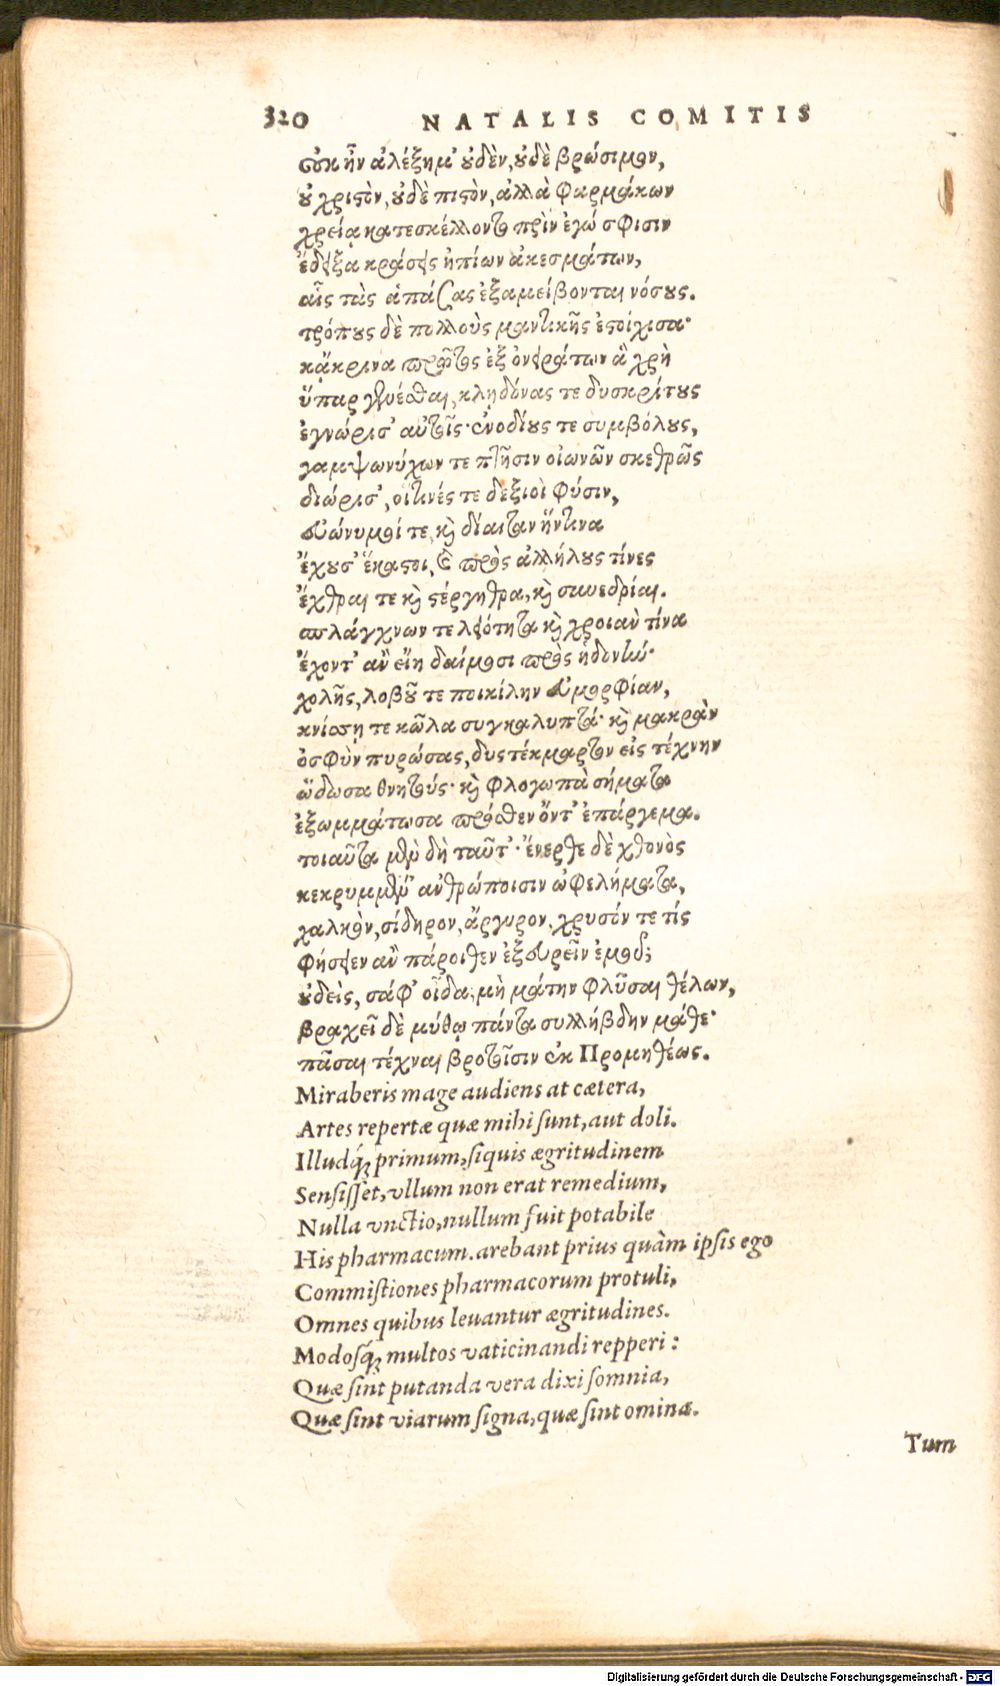 320 NATALIS COMITIS
οὐκ ἦν ἀλέξημ' οὐδὲν, οὐδὲ βρώσιμον,
οὐ χριστὸν, οὐδὲ πιστὸν, ἀλλὰ φαρμάκων
χρείᾳ κατεσκέλλοντο πρὶν ἐγώ σφισιν
ἔδειξα κράσεις ἠπίων ἀκεσμάτων,
αἷς τὰς ἁπάσας ἐξαμείβονται νόσους.
τρόπους δὲ πολλοὺς μαντικῆς ἐστοίχισα·
κᾄκρινα πρῶτος ἐξ ὀνειράτων ἃ χρὴ
ὕπαρ γενέσθαι, κληδόνας τε δυσκρίτους
ἐγνώρισ' αὐτοῖς· ἐνοδίους τε συμβόλους,
γαμψωνύχων τε πτῆσιν οἰωνῶν σκεθρῶς
διώρισ', οἵτινές τε δεξιοὶ φύσιν,
εὐώνυμοί τε, καὶ δίαιταν ἥντινα
ἔχουσ' ἕκαστοι, καὶ πρὸς ἀλλήλους τίνες
ἔχθραι τε καὶ στέργηθρα, καὶ συνεδρίαι.
σπλάγχνων τε λειότητα καὶ χροιαὺ τίνα
ἔχοντ' ἂν εἴη δαίμοσι πρὸς ἡδονήν·
χολῆς, λοβοῦ τε ποικίλην εὐμορφίαν,
κνίσῃ τε κῶλα συγκαλυπτά· καὶ μακρὰν
ὀσφὺν πυρώσας, δυστέκμαρτον εἰς τέχνην
ὥδωσα θνητούς· καὶ φλογωπὰ σήματα
ἐξωμμάτωσα πρόσθεν ὄντ' ἐπάργεμα.
τοιαῦτα μὲν δὴ ταῦτ'· ἔνερθε δὲ χθονὸς
κεκρυμμέν' ἀνθρώποισιν ὠφελήματα,
χαλκὸν, σίδηρον, ἄργυρον, χρυσόν τε τίς
φήσειεν ἂν πάροιθεν ἐξευρεῖν ἐμοῦ;
οὐδεὶς, σάφ' οἶδα, μὴ μάτην φλῦσαι θέλων,
βραχεῖ δὲ μύθῳ πάντα συλλήβδην μάθε·
πᾶσαι τέχναι βροτοῖσιν ἐκ Προμηθέως.
Miraberis mage audiens at cætera,
Artes repertæ quæ mihi ſunt, aut doli.
Illudq́; primum, ſiquis ægritudinem
Senſiſſet, vllum non erat remedium,
Nulla vnctio, nullum fuit potabile
His pharmacum. arebant prius quàm ipſis ego
Commiſtiones pharmacorum protuli,
Omnes quibus leuantur ægritudines.
Modoſq́; multos vaticinandi repperi:
Quæ ſint putanda vera dixi ſomnia,
Quæ ſint viarum ſigna, quæ ſint ominæ.
Tum
Digitalisierung gefördert durch die Deutsche Forschungsgemeinschaft - DFG